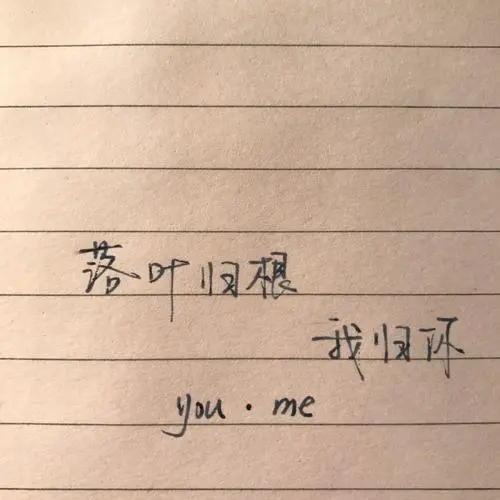 落叶归根
我归你
you · me